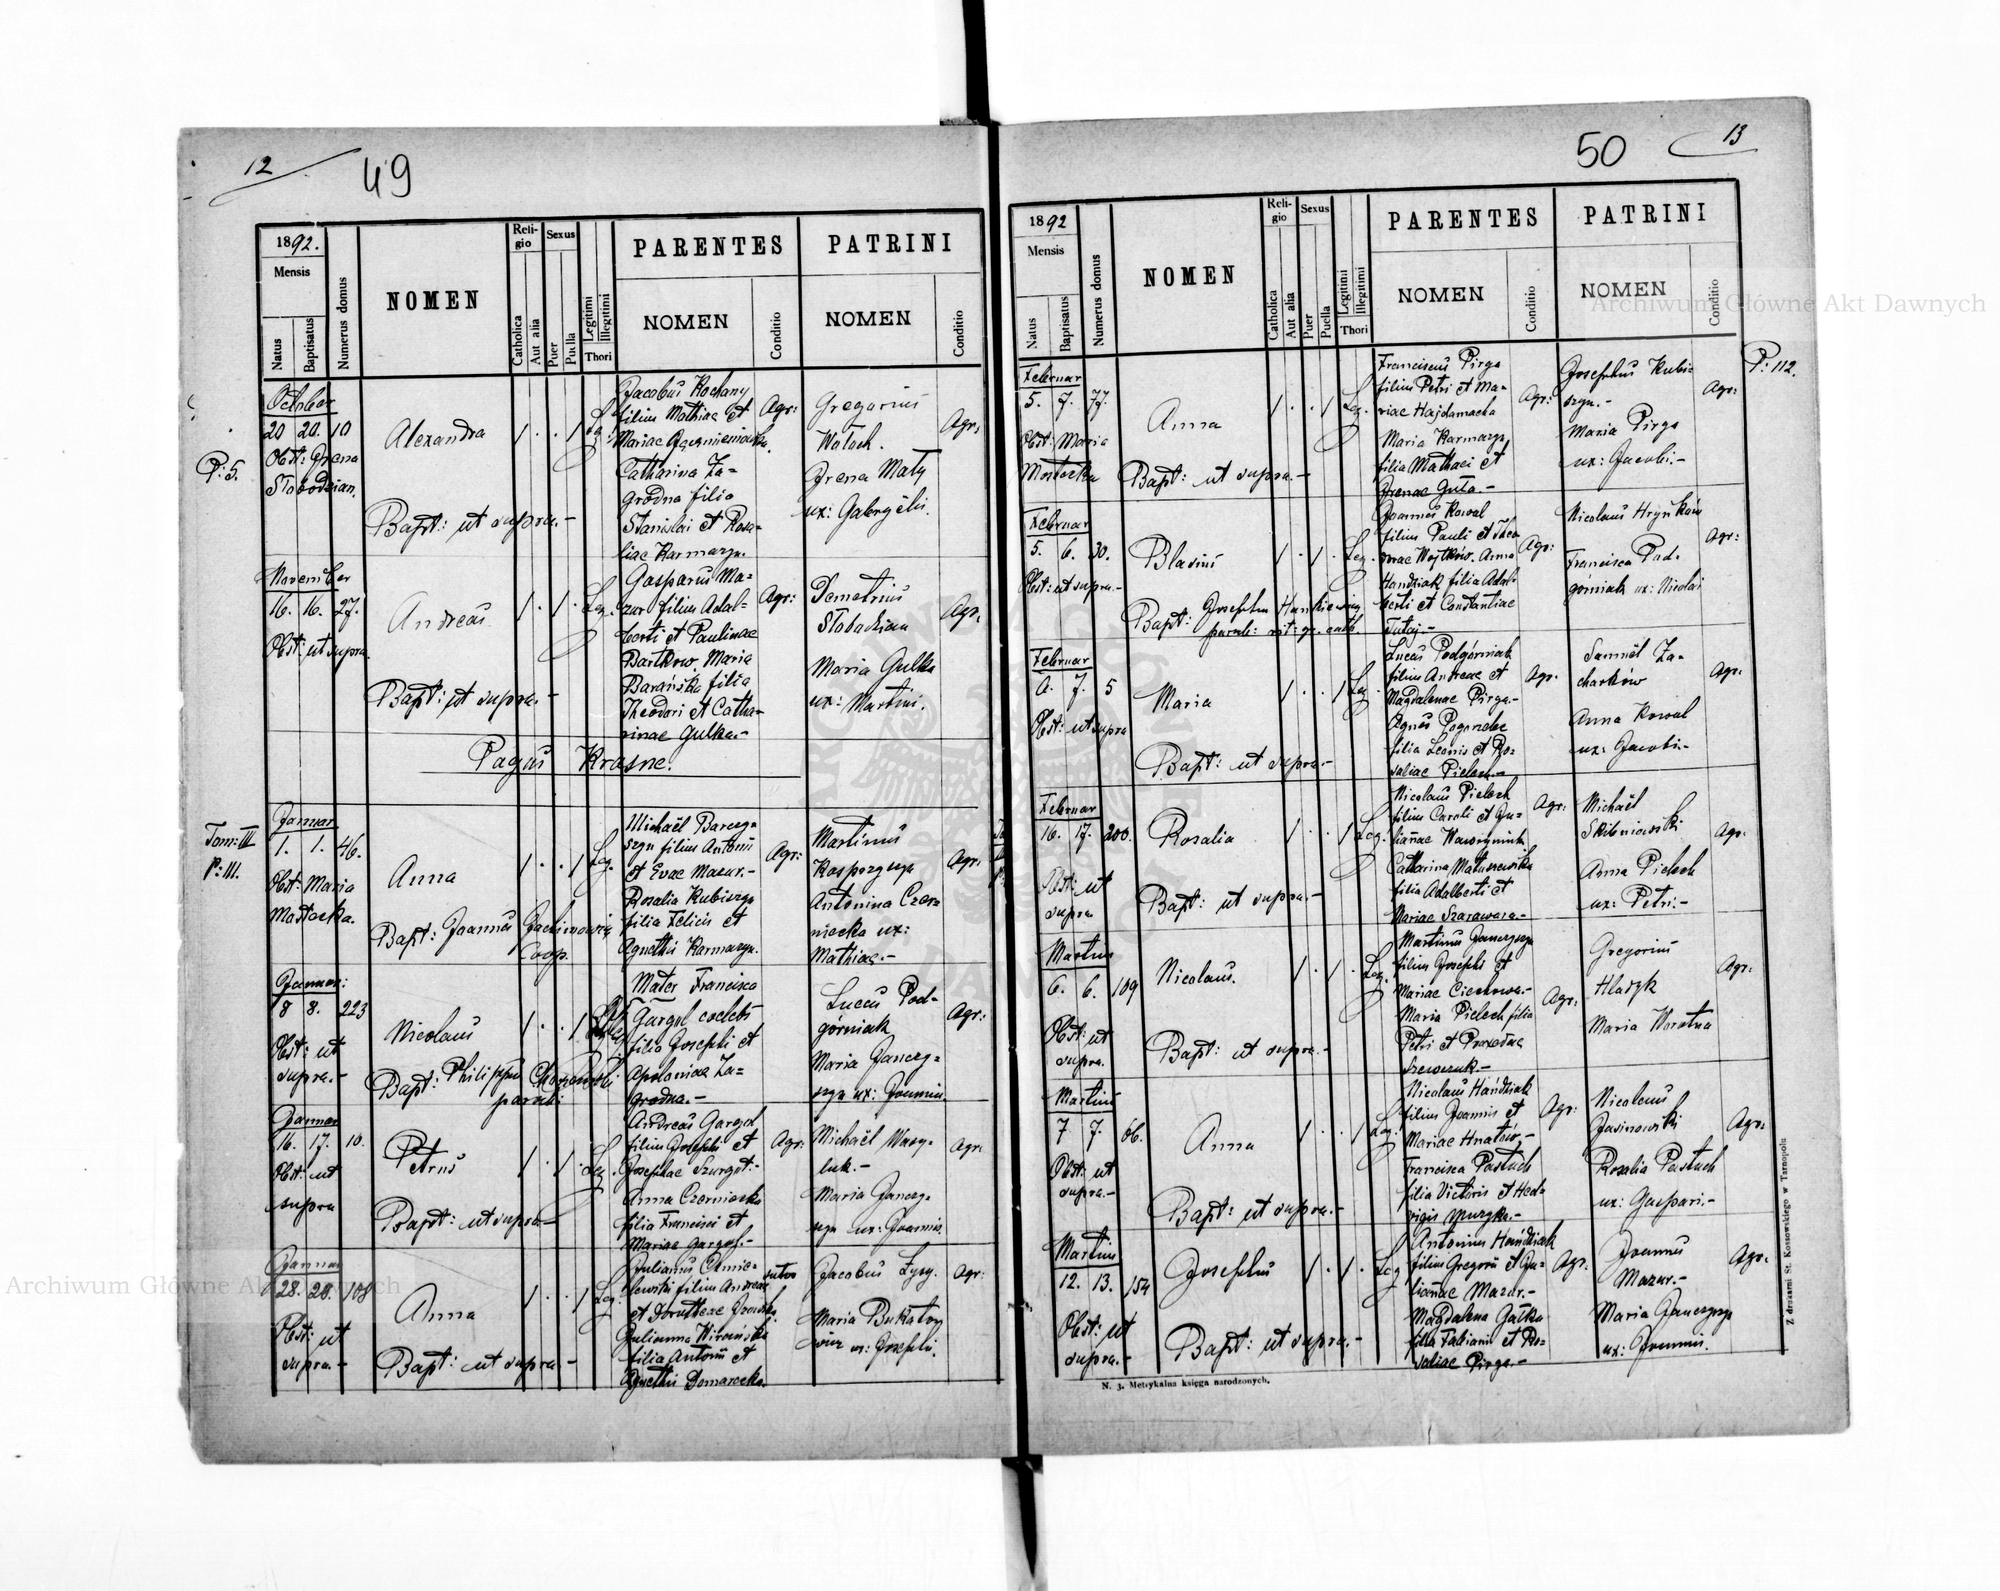 12
49
1892.
Mensis
Natus
Baptisatus
Numerus domus
NOMEN
Religio
Catholica
Aut alia
Sexus
Puer
Puella
Legitimi
Illegitimi
Thori
PARENTES
NOMEN
Conditio
PATRINI
NOMEN
Conditio
P: 5.
October
20 20. 10
Obst: Irena
Slobodzian.
Alexandra
Bapt: ut supra.-
Leg.
Jacobus Kochany
filius Mathiae et
Mariae
Catharina Za=
grodna filia
Stanislai et Rosa=
liae Karmazyn.
Agr:
Gregorius
Woloch.
Irena Maly
ux: Gabryelis.
Agr:
November
16. 16. 27.
Obst: ut supra.
Andreas
Bapt: ut supra.-
Leg.
Gasparus Ma=
zur filius Adal=
berti et Paulinae
Bartkow. Maria
Barańska filia
Theodori et Catha=
rinae Gulka.-
Agr:
Demetrius
Slobodzian
Maria Gulka
ux: Martini.
Agr.
Pagus Krasne.
Tom: III
P: III.
Januar
1. 1. 46.
Obst: Maria
Mostecka.
Anna
Bapt: Joannes
Coop.
Leg.
Michaël
filius Antonii
et Evae Mazur.-
Rosalia
filia Felicis et
Agnethis Karmazyn.
Agr:
Martinus
Antonina Czer=
niecka ux:
Mathiae.-
Agr:
Januar:
8 8. 223
Obst: ut
supra.-
Nicolaus
Bapt: Philippus
paroch:
Mater Francisca
Gargol coelebs
filia Josephi et
Apoloniae Za=
grodna.-
Lucas Pod=
górniak
Maria
ux: Joannis
Agr:
Januar
16. 17. 10.
Obst: ut
supra
Petrus
Bapt: ut supra.-
Leg.
Andreas Gargol
filius Josephi et
Josephae Szurgot.-
Anna Czerniecka
filia Francisci et
Mariae Gargol.-
Agr:
Michaël Wasy=
luk.-
Maria
ux: Joannis.
Agr:
Januar
28. 28. 108
Obst: ut
supra.-
Anna
Bapt: ut supra.-
Leg.
Julianus
filius Andreae
et Dorotheae
Julianna
filia Antonii et
Agnethis Domarecka.
sutor
Jacobus Lysy.
Maria
ux: Josephi.
Agr:
50
13
1892
Mensis
Natus
Baptisatus
Numerus domus
NOMEN
Religio
Catholica
Aut alia
Sexus
Puer
Puella
Legitimi
Illegitimi
Thori
PARENTES
NOMEN
Conditio
PATRINI
NOMEN
Conditio
P: 112.
Februar
5. 7. 77.
Obst: Maria
Mostecka
Anna
Bapt: ut supra.-
Leg.
Franciscus Pirga
filius Petri et Ma=
riae Hajdamacha
Maria Karmazyn
filia Mathaei et
Irenae Guła.-
Agr:
Josephus
Maria Pirga
ux: Jacobi.-
Agr:
Februar
5. 6. 30.
Obst: ut supra.-
Blasius
Bapt: Josephus
paroch: rit: gr. cath.
Leg.
Joannes Kowal
filius Pauli et
Wojtków. Anna
Handziak filia Adal=
berti et Constantiae
Tutaj.-
Agr:
Nicolaus Hryńków
Francisca Pod=
górniak ux: Nicolai
Agr:
Februar
6. 7. 5
Obst: ut supra
Maria
Bapt: ut supra.-
Leg.
Lucas Podgórniak
filius Andreae et
Magdalenae Pirga.-
Agnes
filia Leonis et Ro=
saliae Pielech.-
Agr.
Samuël Za=
charków
Anna Kowal
ux: Jacobi.-
Agr:
Februar
16. 17. 200.
Obst: ut
supra
Rosalia
Bapt: ut supra.-
Leg.
Nicolaus Pielech
filius Caroli et Ju=
liannae
Catharina
filia Adalberti et
Mariae
Agr:
Michaël
Skibniowski
Anna Pielech
ux: Petri.-
Agr:
Martius
6. 6. 109
Obst: ut
supra.
Nicolaus.
Bapt: ut supra.-
Leg.
Martinus
filius Josephi et
Mariae
Maria Pielech filia
Petri et Praxedae
Szewczuk.-
Agr:
Gregorius
Hladyk
Maria Worotna
Agr:
Martius
7 7. 66.
Obst: ut
supra.-
Anna
Bapt: ut supra.-
Leg.
Nicolaus Hańdziak
filius Joannis et
Mariae Hnatów.-
Francisca Pastuch
filia Victoris et Hed=
vigis
Agr:
Nicolaus
Jasinowski
Rosalia Pastuch
ux: Gaspari.-
Agr:
Martius
12. 13. 154
Obst: ut
supra.-
Josephus
Bapt: ut supra.-
Leg
Antonius Hańdziak
filius Gregorii et Ju=
liannae Mazur.-
Magdalena Gułka
filia Fabiani et Ro=
saliae Pirga.-
Agr.
Joannes
Mazur.-
Maria
ux: Joannis.
Agr:
N. 3. Metrykalna księga narodzonych.
Z drukarni St. Kossowskiego w Tarnopolu
Archiwum Główne Akt Dawnych
Archiwum Główne Akt Dawnych